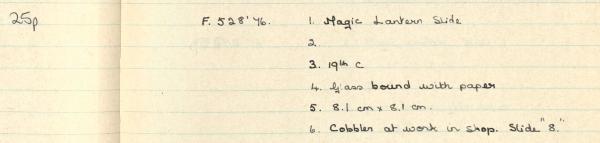 25p F. 528'76. 1. Magic Lantern Slide
2.
3. 19th C
4. Glass bound with paper
5. 8.1 cm x 8.1 cm.
6. Cobbler at work in shop. Slide "8."